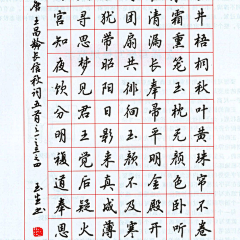 井梧桐秋叶黄珠帘不卷
霜熏笼玉枕无颜色卧听
清漏长奉帚平明金殿开
团扇共徘徊玉颜不及寒
犹带昭阳日影来真成薄
寻思梦见君王觉后疑火
宫知夜饮分明複道奉恩
唐王昌龄长信秋词五首之一之三之四 玉生书